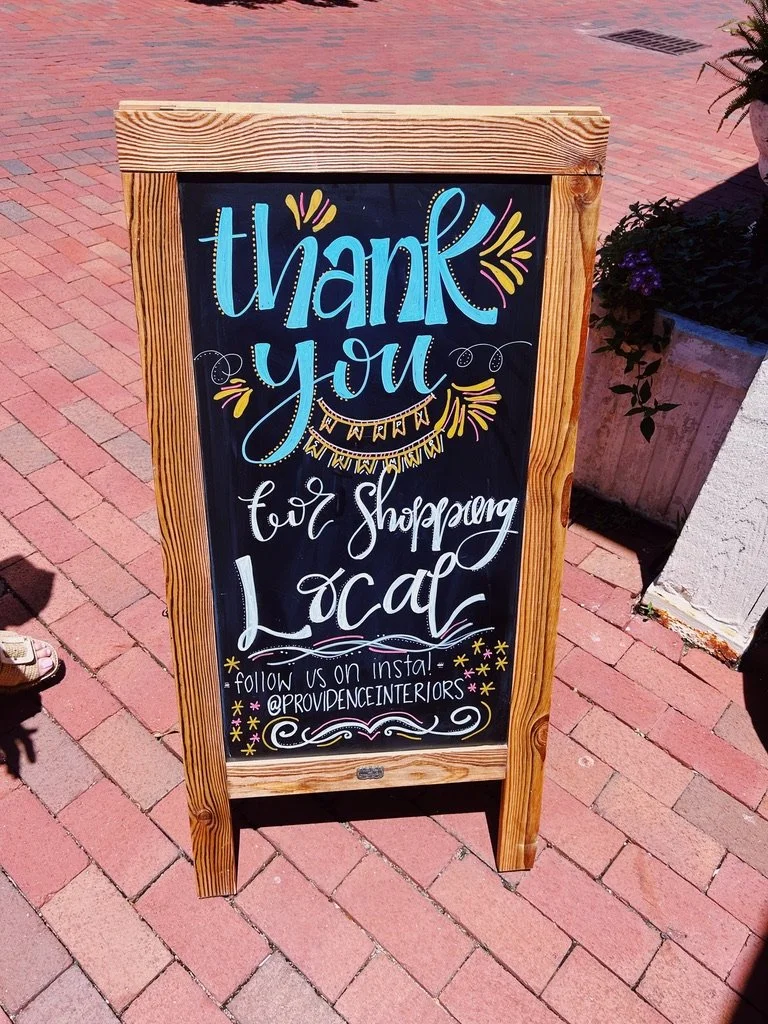 thank
you
HAPPY
SUMMER
for Shopping
Local
- follow us on insta! -
@PROVIDENCEINTERIORS